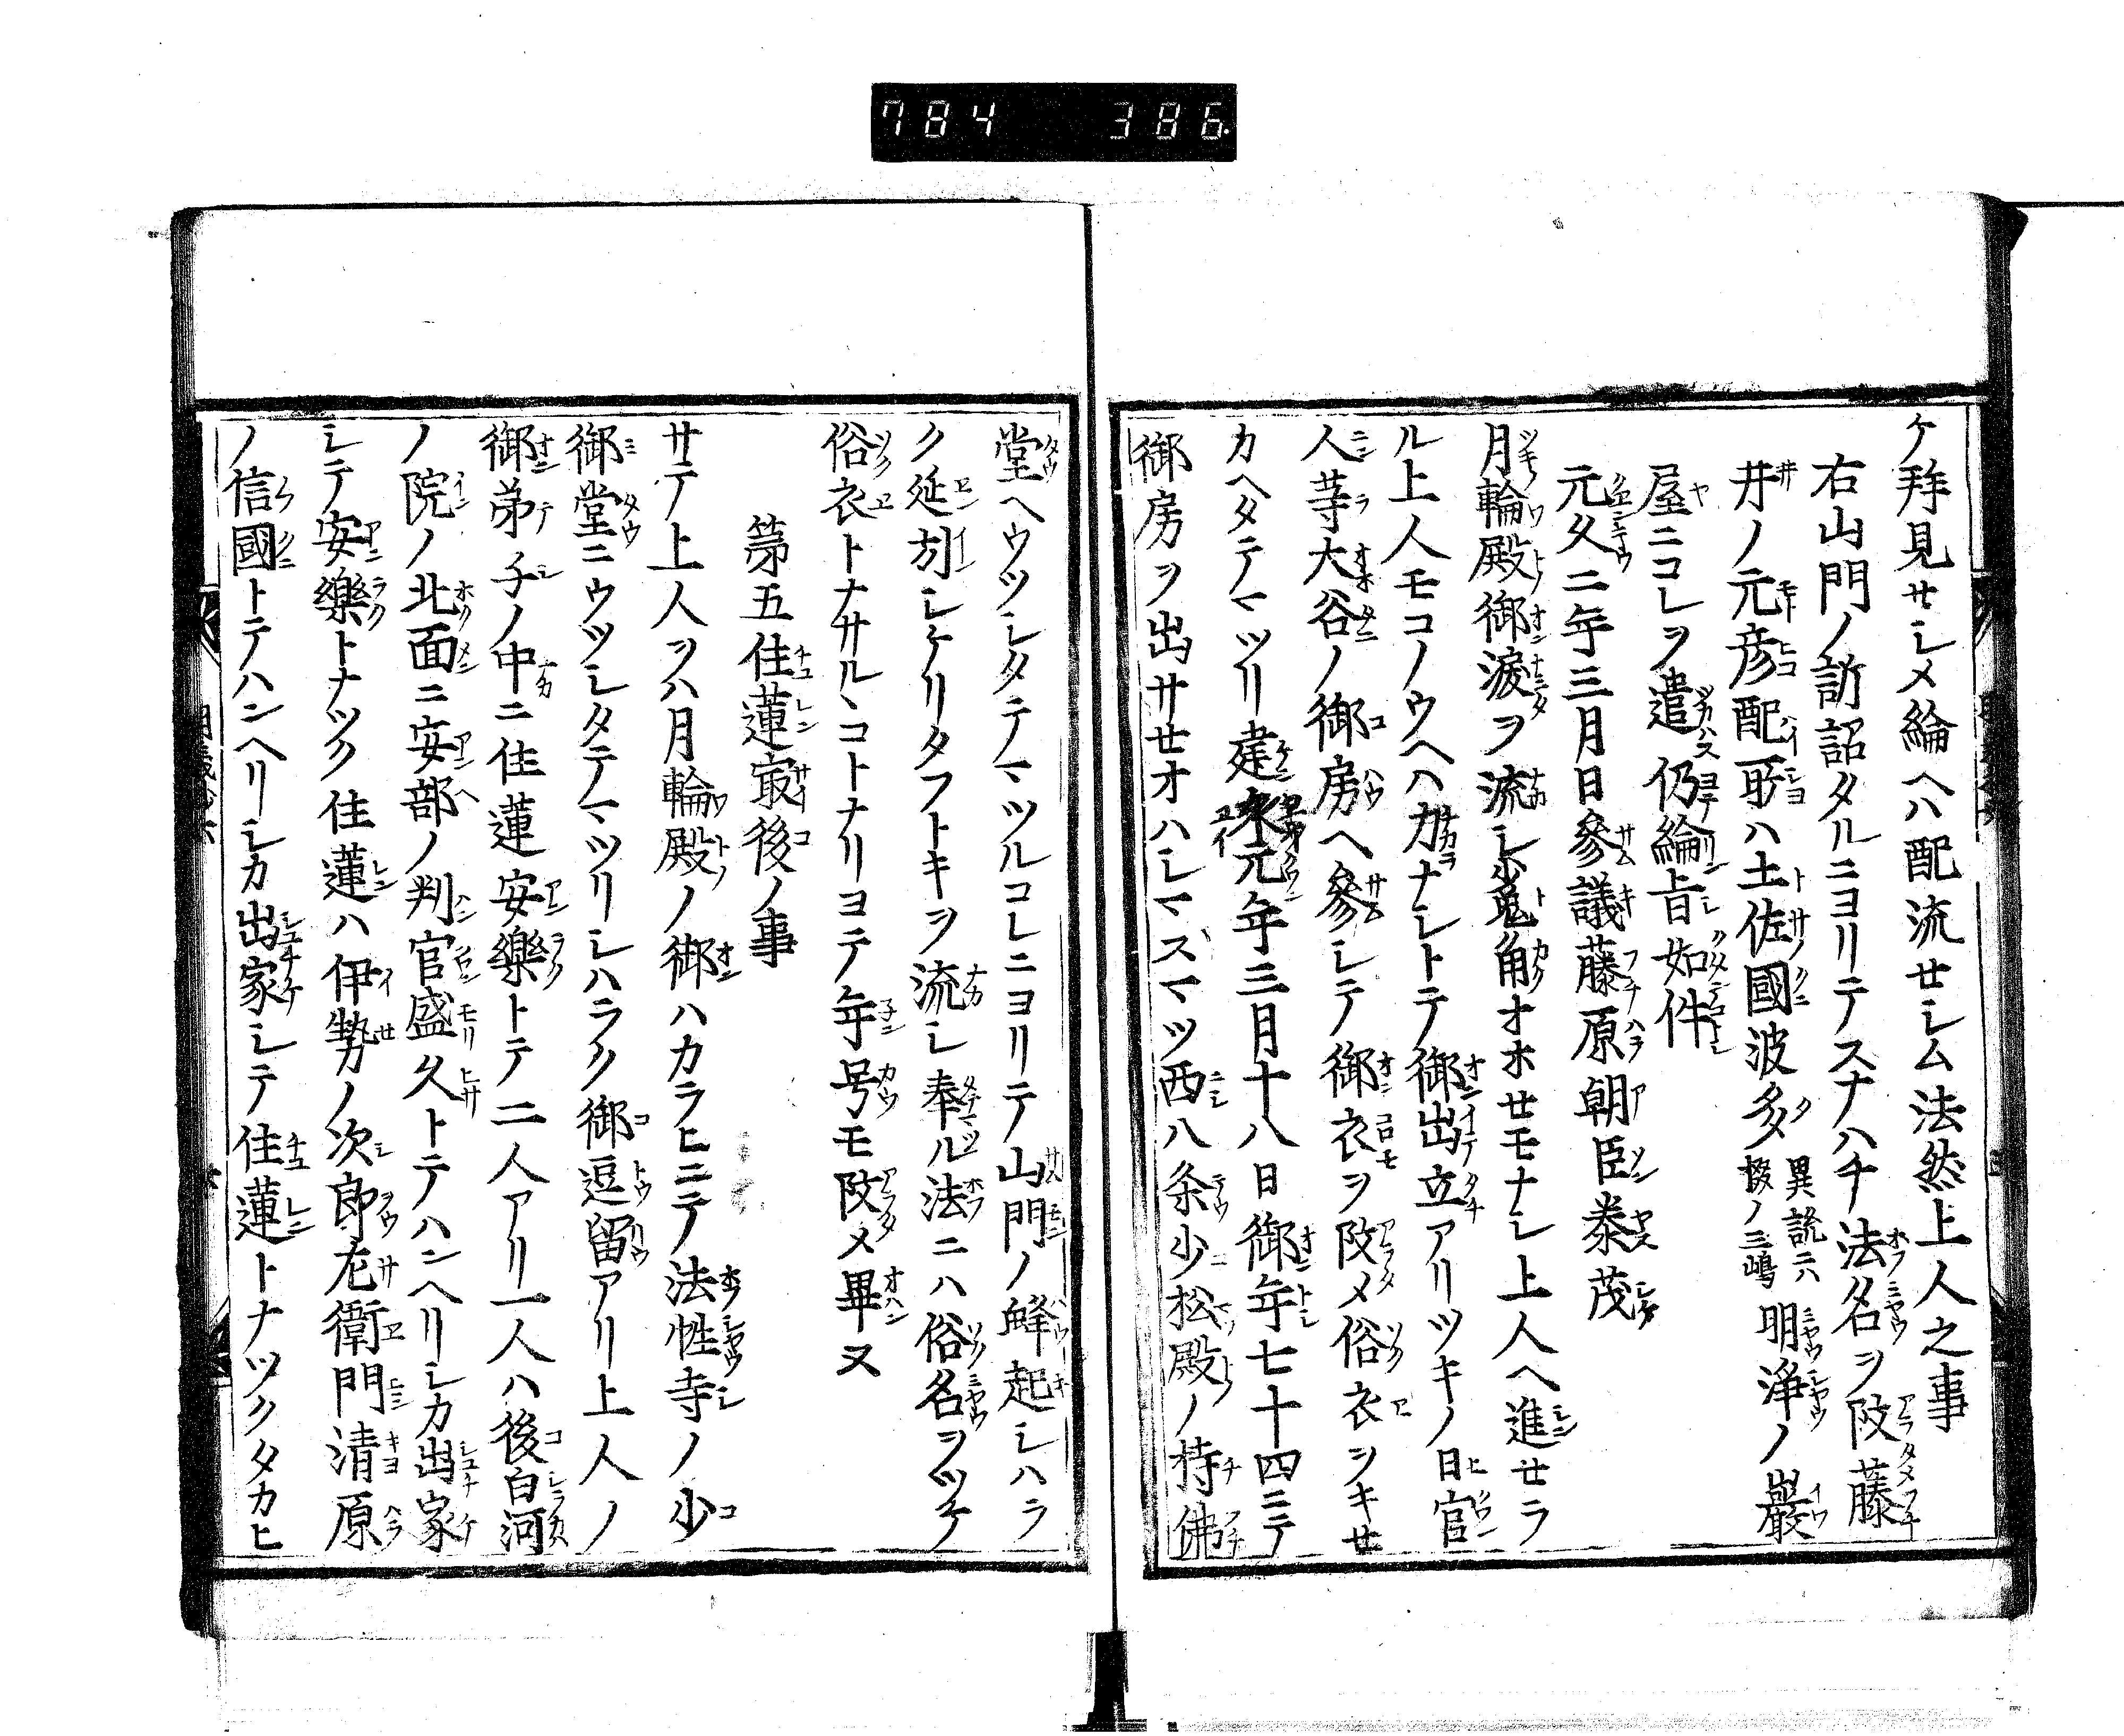 784 386
ケ拜見せシメ綸ヘハ配流せシム法然上人之事
右山門ノ訴詔タルニヨリテスナハチ法名ヲ改藤
井ノ元彦配所ハ土佐國波多 明淨ノ巖
屋ニコレヲ遣仍綸旨如件
元久二年三月日參議藤原朝臣泰茂
月輪殿御淚ヲ流シ兎角オホせモナシ上人ヘ進せラ
ル上人モコノウヘハ力ナシトテ御出立アリツキノ日官
人等大谷ノ御房ヘ參シテ御衣ヲ改メ俗衣ヲキせ
カヘタテマツリ建永元年三月十八日御年七十四ニテ
御房ヲ出サせオハシマスマツ西八条少松殿ノ持佛
堂ヘウツシタテマツルコレニヨリテ山門ノ蜂起シハラ
ク延刻シケリタフトキヲ流シ奉ル法ニハ俗名ヲツケ
俗衣トナサルヽコトナリヨテ年号モ改メ畢ヌ
第五住蓮㝡後ノ事
サテ上人ヲハ月輪殿ノ御ハカラヒニテ法性寺ノ少
御堂ニウツシタテマツリシハラク御逗留アリ上人ノ
御弟子ノ中ニ住蓮安樂トテ二人アリ一人ハ後白河
ノ院ノ北面ニ安部ノ判官盛久トテハンヘリシカ出家
シテ安樂トナツク住蓮ハ伊勢ノ次郎左衛門清原
ノ信國トテハンヘリシカ出家シテ住蓮トナツクタカヒ